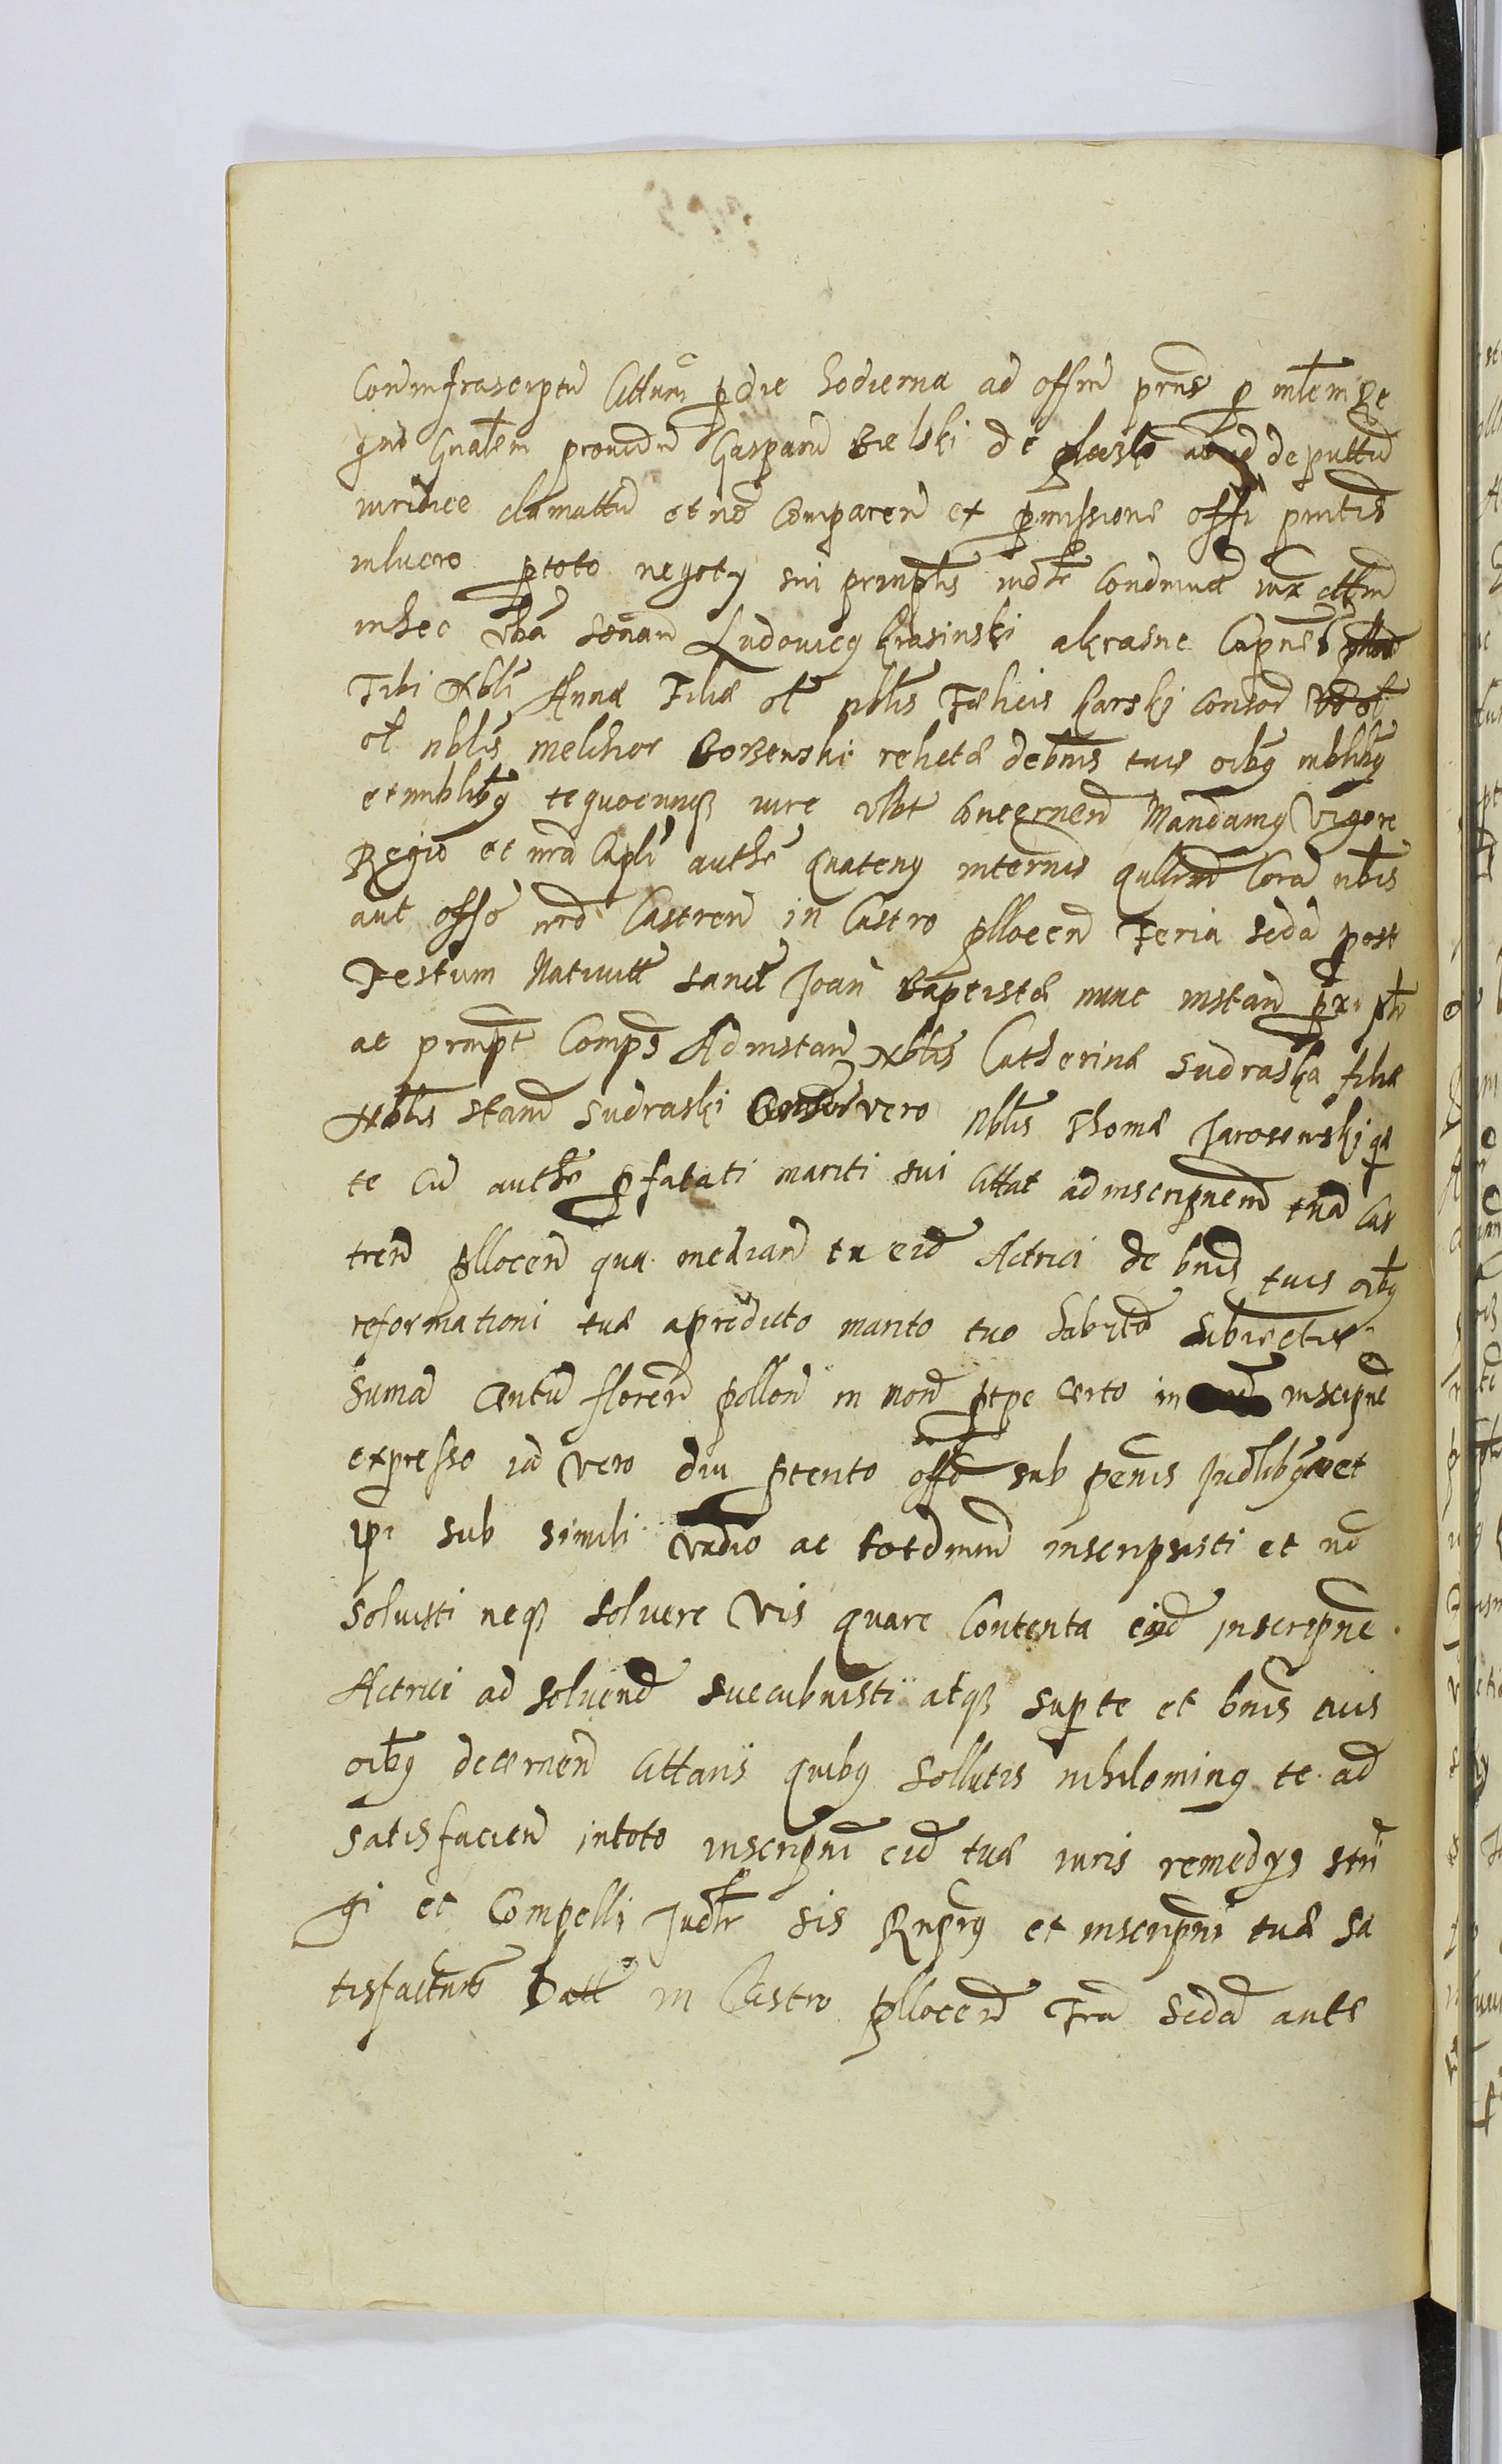 Coninfrascriptu Cittum p die hodierna ad offm prns p mlem Re
gni Gnalem providu Gasparu Bielski de ad id deputtu
iuridice clamattu et no Comparen ex pmissione offi pntis
inlucro p toto negoty sui prinplis iudr Condmnat iux cttm
in hec vba sonan Ludovicq Krasinski akrasne Capnes
Tibi Nbli Annæ Filiæ ol nblis Fælicis Karski consor
ol nblis Melchior Borzenski relictæ de bnis tuis oibq mblibq
et inmblibq te quocunqz iure vlbt concernen Mandamq Vigore
Regio et nra Capli authe quatenq internis qulimd Cora nbis
aut offo nro Castren in Castro plloceen Feria seda post
Festum Nativitt Sanct Joan Baptistæ nunc instan prx plr
ac prmpt Comps Ad instan Nblis Catherinæ Sudraska filiæ
Nblis Stani Sudraski vero Nblis Thomæ Jarosewski qæ
te cu authe pfatati mariti sui Cittat ad inscripnem tua Cas
tren pllocen qua median tu eid Actrici de bnis tuis oibq
reformationi tuæ a predicto marito tuo habito subiectis
suma Centu floren pollon in mon p tpe certo in inscripne
expresso iad vero diu ptento offo sub penis Judlibq et
ipi sub simili vadio ac totdmmd inscripsisti et no
solvisti neqz solvere vis quare Contenta eiqd inscripne
Actrici ad solvend succubuisti atqz sup te et bnis tuis
oibq decernen Cittaris quibq sollutis nihilominq te ad
satisfacien in toto inscripni eid tuæ iuris remedys stri
gi et Compelli Judr sis Rnsprq et inscripni tuæ sa
tisfactura Datt in Castro pllocen Fra seda ante